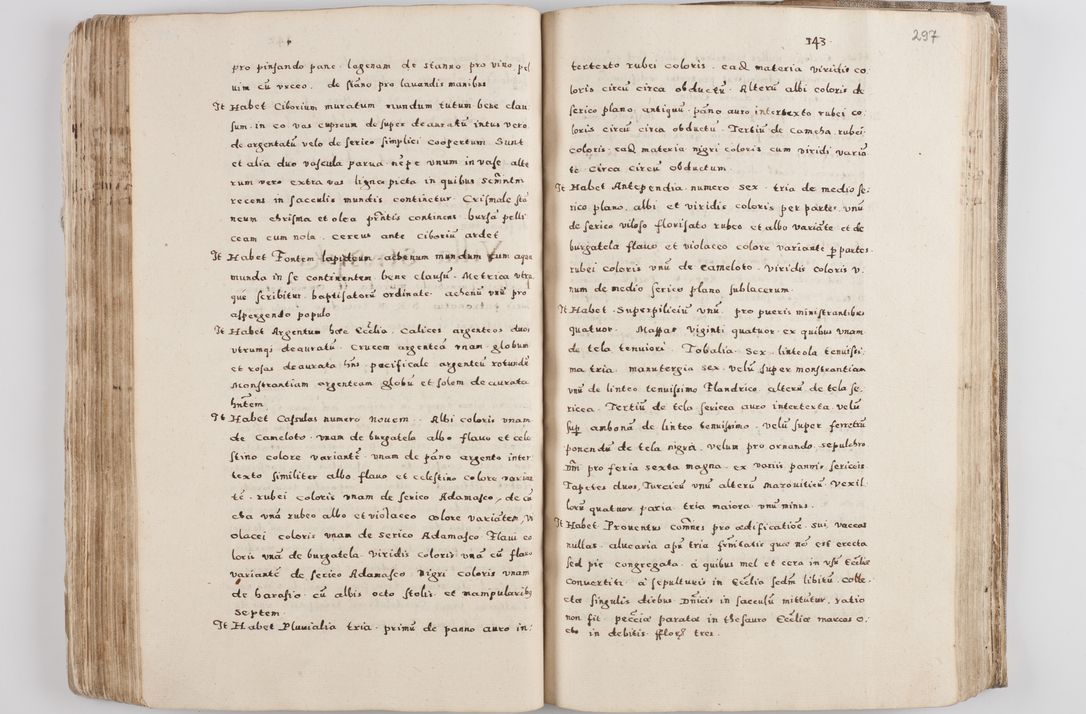 pro pinsando pane · lagenam de stanno pro vino pel
uim cū vrceo · de stāno pro lauandis manibus
It Habet Ciborium muratum mundum tutum bene clau
sum · in eo vas cupreum desuper deauratū intus vero
deargentatū velo de serico simplici coopertum · Sunt
et alia duo vascula parua · nēpe vnum in vase alte
rum vero extra vas lignea picta in quibus Scm̄ntm
recens in sacculis mundis continetur Crismale sta
neum chrisma et olea prn̄tis continens · bursa pelli
ceam cum nola · Cereus ante Ciboriū ardet
It Habet Fontem lapideum · ahenum mundum cum aqua
munda in se continentem bene clausū · Metrica vtra
que scribitur baptisatorū ordinate · ahenū vnū pro
aspergendo populo
It Habet Argentum hæc Ecc̄lia · Calices argenteos duos
vtrumq; deauratū · Crucem argenteā vnam · globum
et rosas deaurata hn̄s · pacificale argenteū rotundē
Monstrantiam argenteam globū et solem deaurata
hn̄tem
It Habet Casulas numero nouem · Albi coloris vnam
de Cameloto · vnam de burgatela albo flauo et cele
stino colore variantē · vnam de pāno argento inter
texto similiter albo flauo et celestino colore varian
tē · rubei coloris vnam de serico Adamasco, de cā
cha vnā rubeo albo et violaceo colore variātem, Vi
olacei coloris vnam de serico Adamasco Flaui co
loris vnā de burgatela · viridis coloris vnā cū flauo
variantē de serico Adamasco · Nigri coloris vnam
de barasio · cū albis octo stolis et manipularibq
Septem ·
It Habet Pluuialia tria · primū de panno auro in:
143
297
tertexto rubei coloris · eadē materia viridis co
loris circū circa obductū · Alterū albi coloris de
serico plano, antiquū · pāno auro intertexto rubei co
loris circū circa obductū · Tertiū de Camcha rubei
coloris · eadē materia nigri coloris cum viridi varia
te circa circū obductum ·
It Habet Antependia numero sex · tria de medio se:
rico plano, albi et viridis coloris per partes, vnū
de serico viloso florisato rubeo et albo variāte et de
burgatela flauo et violaceo colore variante p partes ·
rubei coloris vnū de Cameloto · viridis coloris v:
num de medio serico plano sublacerum ·
It Habet · Superpiliciū vnū · pro pueris ministrantibus
quatuor · Mappas viginti quatuor ex quibus vnam
de tela tenuiori · Tobalia · Sex · linteola tenuissi:
ma tria · manutergia sex · velū super monstrantiam
vnū de linteo tenuissimo Flandrico · alterū de tela se:
ricea · Tertiū de tela sericea auro intertexta · velū
sup ambonā de linteo tenuissimo · velū super feretrū
ponendū de tela nigra · velum pro ornando sepulchro
Dn̄i pro feria sexta magna · ex variis pannis sericeis ·
Tapetes duos, Turcicū vnū alterū Mazouiticū · Vexil
lorū quatuor paria · tria maiora vnū minus ·
It Habet Prouentus com̄nes pro ædificatiōe sui, vaccas
nullas · aluearia apū tria frm̄itatis quæ nō est erecta
sed pie congregata · a quibus mel et cera in vsū Ecc̄liæ
Conuertitr · a sepulturis in Ecc̄lia sedm̄ libitū, colle:
cta singulis diebus Dn̄icis in sacculū mittūtur, ratio
non fit · pecc̄ia parata in thesauro Ecc̄liæ marcas o:
cto in debitis fflor3 tres ·